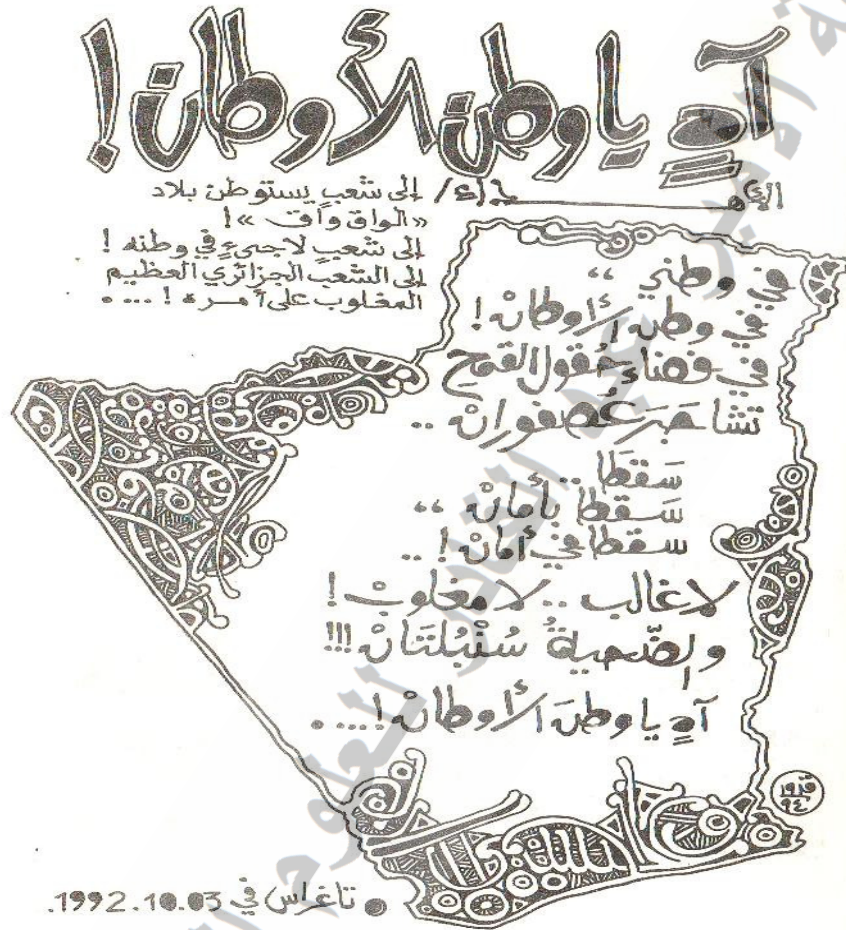 آهٍ يا وطن الأوطان!
الإهــــــداء/ إلى شعبٍ يستوطن بلاد
«الواق واق»!
إلى شعبٍ لاجىءٍ في وطنه!
إلى الشعب الجزائري العظيم
المغلوب على أمره!....
في وطني،،
في وطن الأوطانْ!
في فضاء حُقول القمحِ
تشاجَرَ عُصفورانْ..
سَقطَا..
سَقطَا بأمانْ،،
سقطا في أمانْ!..
لا غالب.. لا مغلوبْ!
والضّحيةُ سُنْبُلتَانْ!!!
آهٍ يا وطنَ الأوطانْ!....
تاغراس في 1992.10.03.